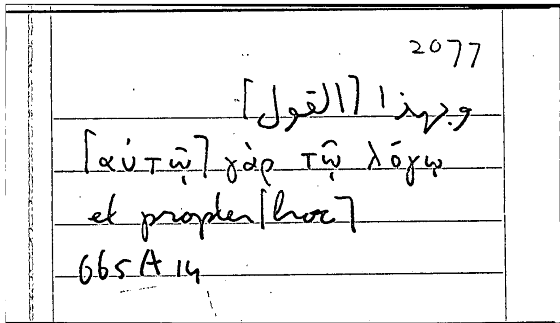 2077
وبهذا [القول]
[αὐτῷ] γὰρ τῷ λόγῳ
et propter [hoc]
665 A 14